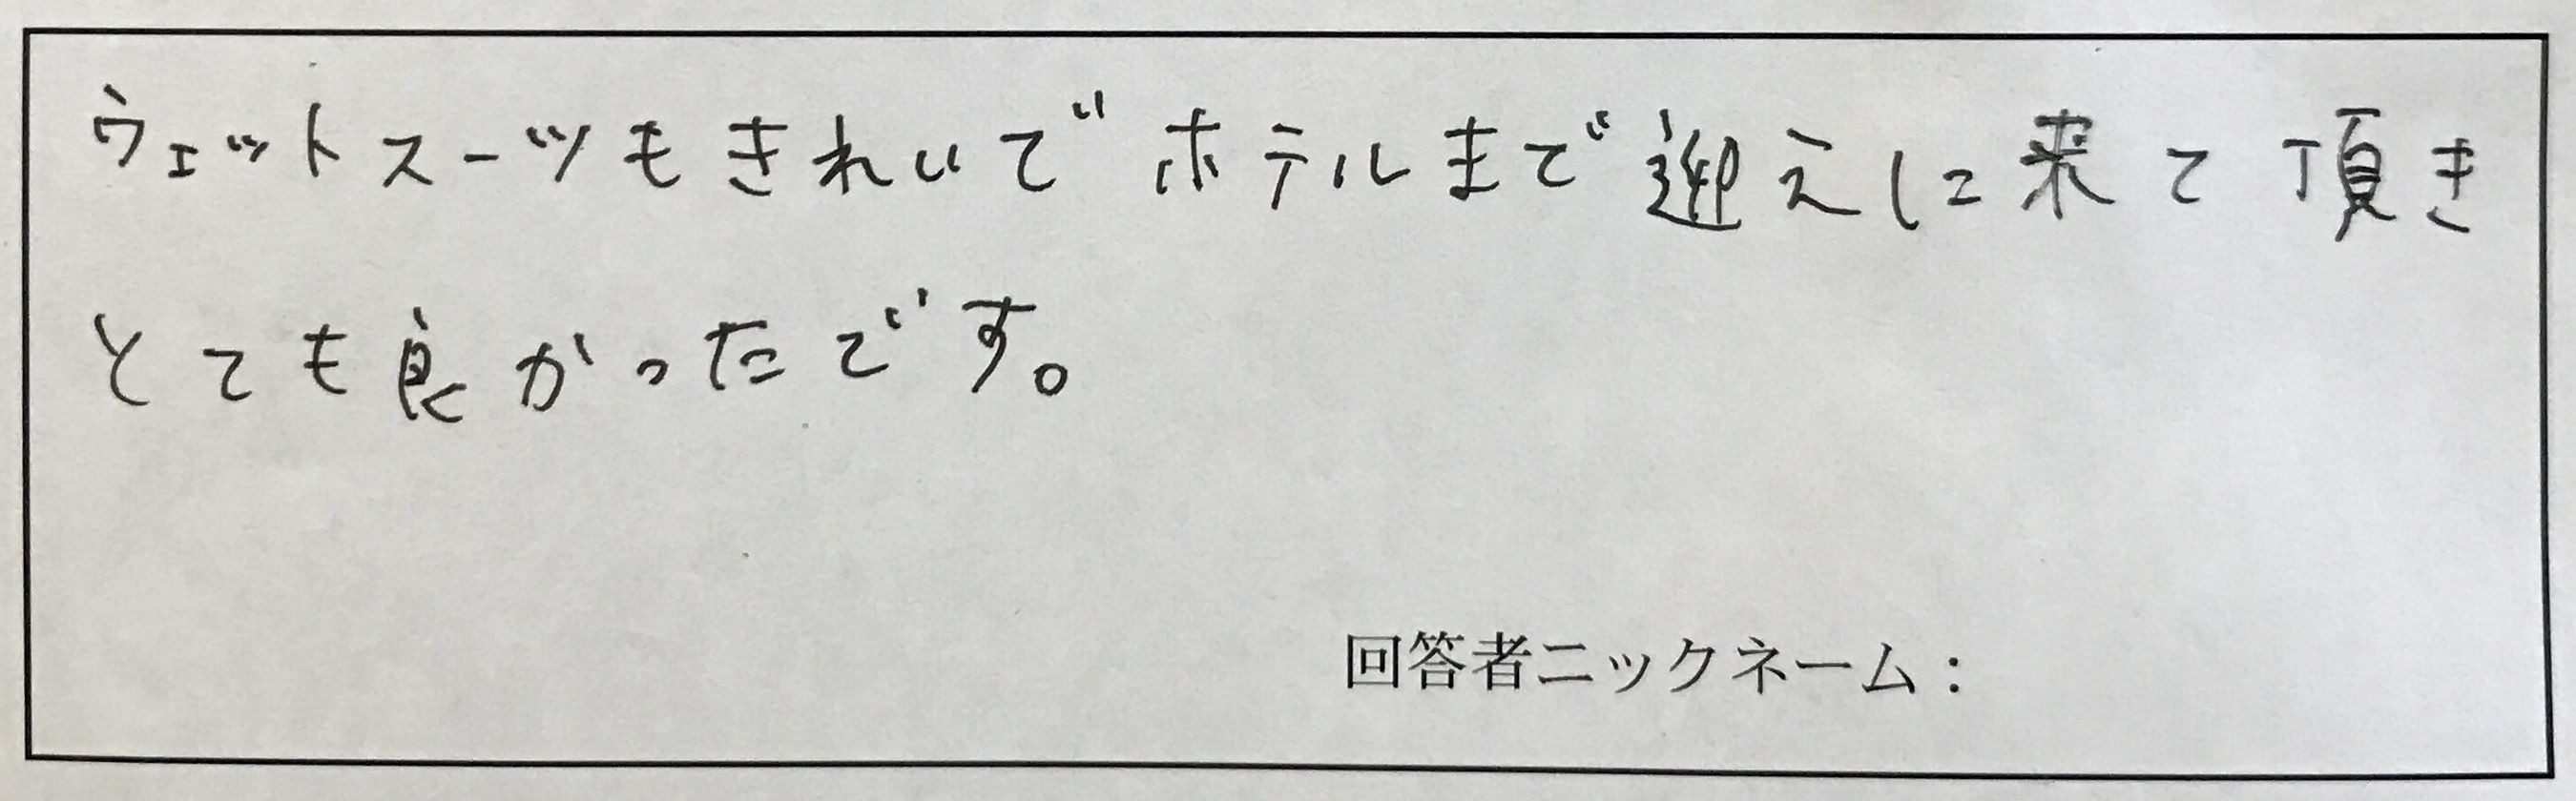 ウェットスーツもきれいでホテルまで迎えに来て頂き
とても良かったです。
回答者ニックネーム：